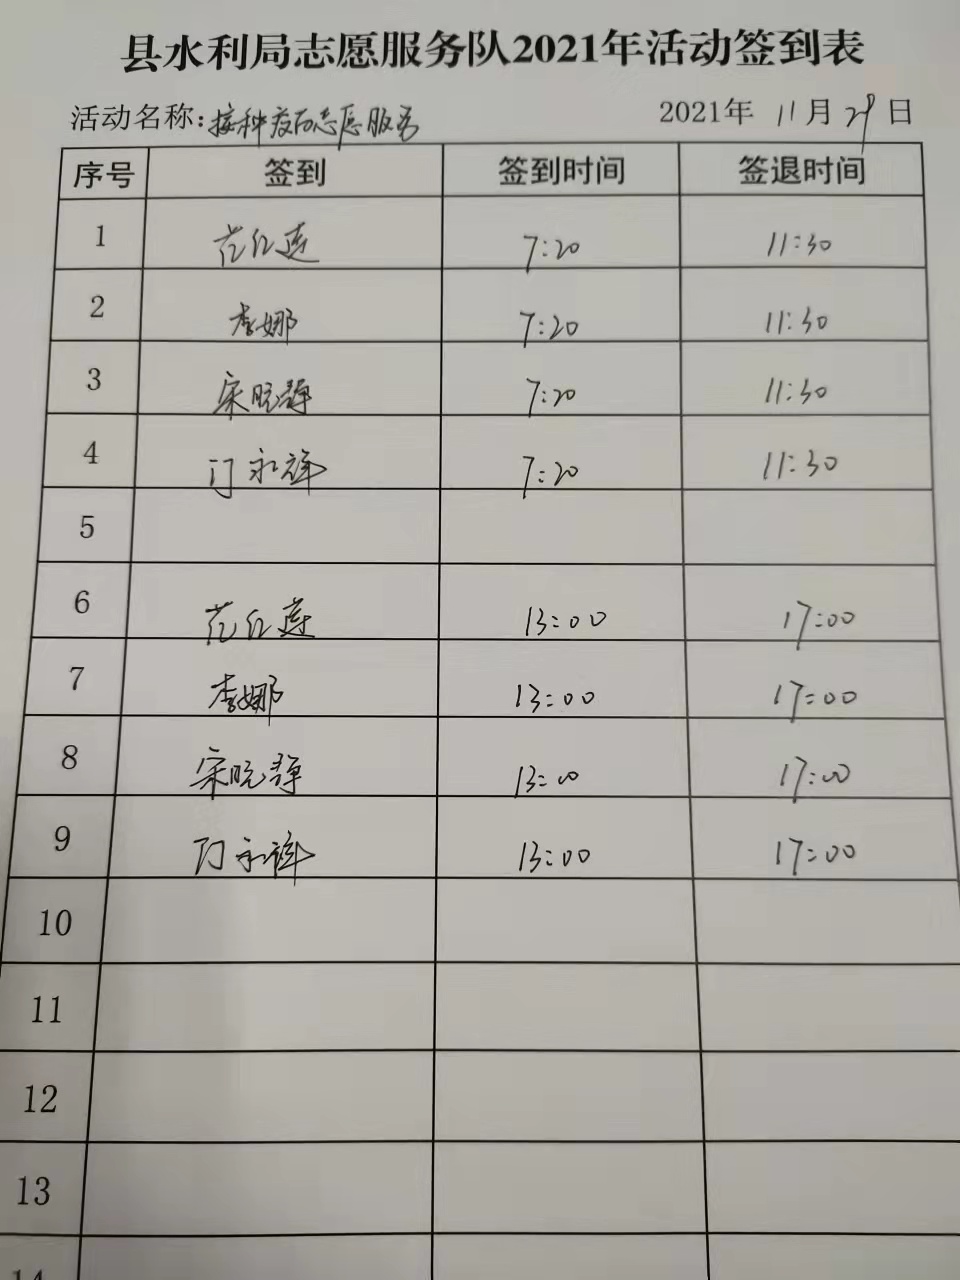 县水利局志愿服务队2021年活动签到表
活动名称：接种疫苗志愿服务 2021年 11月29日
序号 签到 签到时间 签退时间
1 范红莲 7:20 11:30
2 李娜 7:20 11:30
3 宋晓静 7:20 11:30
4 门永祥 7:20 11:30
5
6 范红莲 13:00 17:00
7 李娜 13:00 17:00
8 宋晓静 13:00 17:00
9 门永祥 13:00 17:00
10
11
12
13
14